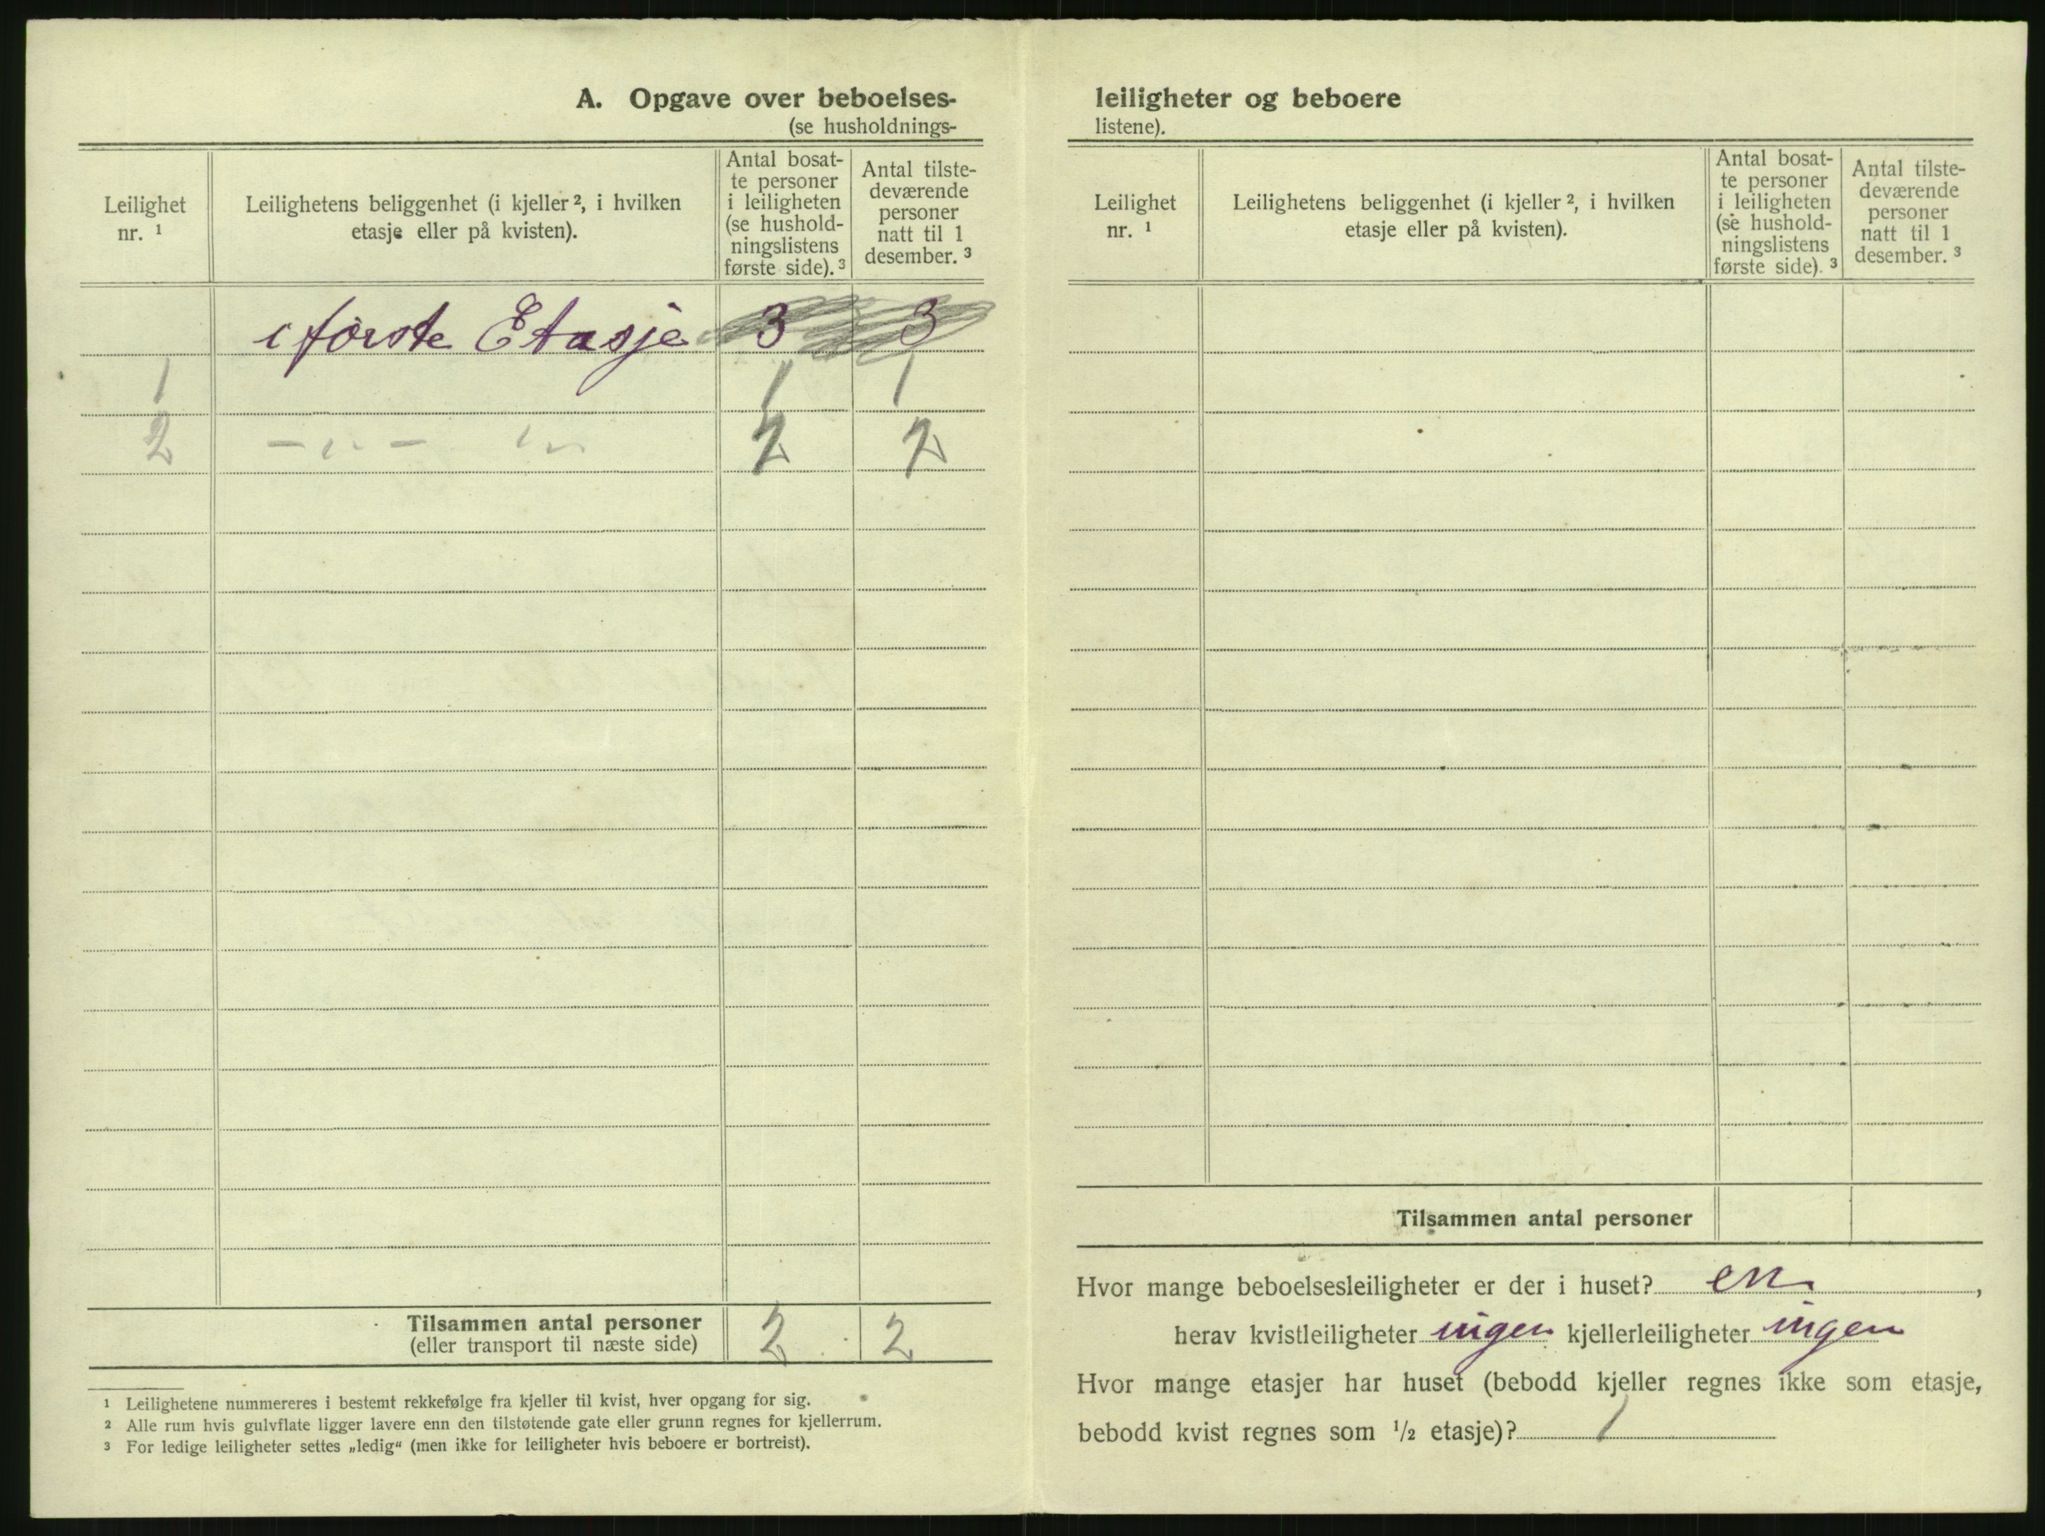 A. Opgave over beboelses-
(se husholdnings-
Leilighet
nr. ¹
Leilighetens beliggenhet (i kjeller ², i hvilken
etasje eller på kvisten).
Antal bosat-
te personer
i leiligheten
(se hushold-
ningslistens
første side). ³
Antal tilste-
deværende
personer
natt til 1
desember. ³
i første Etasje 3 3
1 1 1
2 — „ — „ 2 2
Tilsammen antal personer
(eller transport til næste side) 2 2
¹ Leilighetene nummereres i bestemt rekkefølge fra kjeller til kvist, hver opgang for sig.
² Alle rum hvis gulvflate ligger lavere enn den tilstøtende gate eller grunn regnes for kjellerrum.
³ For ledige leiligheter settes „ledig“ (men ikke for leiligheter hvis beboere er bortreist).
leiligheter og beboere
listene).
Leilighet
nr. ¹
Leilighetens beliggenhet (i kjeller ², i hvilken
etasje eller på kvisten).
Antal bosat-
te personer
i leiligheten
(se hushold-
ningslistens
første side). ³
Antal tilste-
deværende
personer
natt til 1
desember. ³
Tilsammen antal personer
Hvor mange beboelsesleiligheter er der i huset? en,
herav kvistleiligheter ingen kjellerleiligheter ingen
Hvor mange etasjer har huset (bebodd kjeller regnes ikke som etasje,
bebodd kvist regnes som ½ etasje)? 1